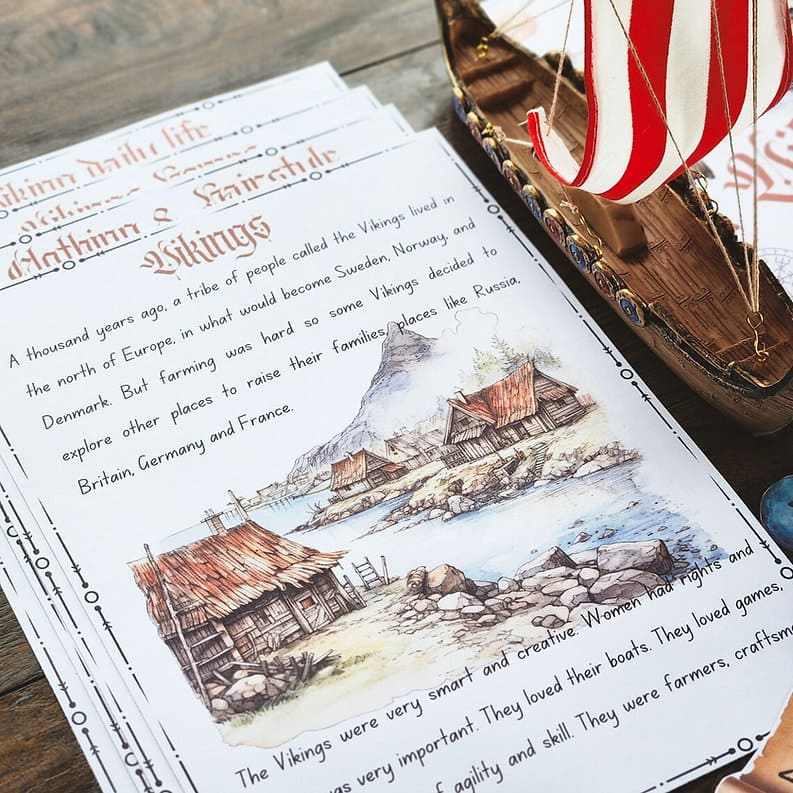 Viking daily life
Vikings
Clothing & Hairstyle
Vikings
A thousand years ago, a tribe of people called the Vikings lived in
the north of Europe, in what would become Sweden, Norway, and
Denmark. But farming was hard so some Vikings decided to
explore other places to raise their families, places like Russia,
Britain, Germany and France.
The Vikings were very smart and creative. Women had rights and
was very important. They loved their boats. They loved games,
of agility and skill. They were farmers, craftsm